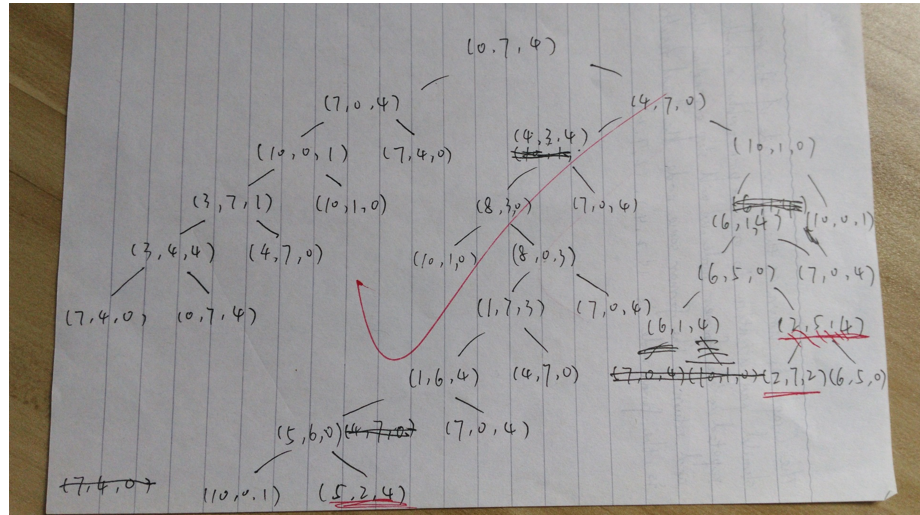 (0,7,4)
(7,0,4) (4,7,0)
(10,0,1) (7,4,0) (4,3,4) (10,1,0)
(3,7,1) (10,1,0) (8,3,0) (7,0,4) (6,1,4) (10,0,1)
(3,4,4) (4,7,0) (10,1,0) (8,0,3) (6,5,0) (7,0,4)
(7,4,0, (0,7,4) (1,7,3) (7,0,4) (6,1,4) (2,5,4)
(1,6,4) (4,7,0) (7,0,4) (10,1,0) (2,7,2) (6,5,0)
(5,6,0) (4,7,0) (7,0,4)
(7,4,0) (10,0,1) (5,2,4)